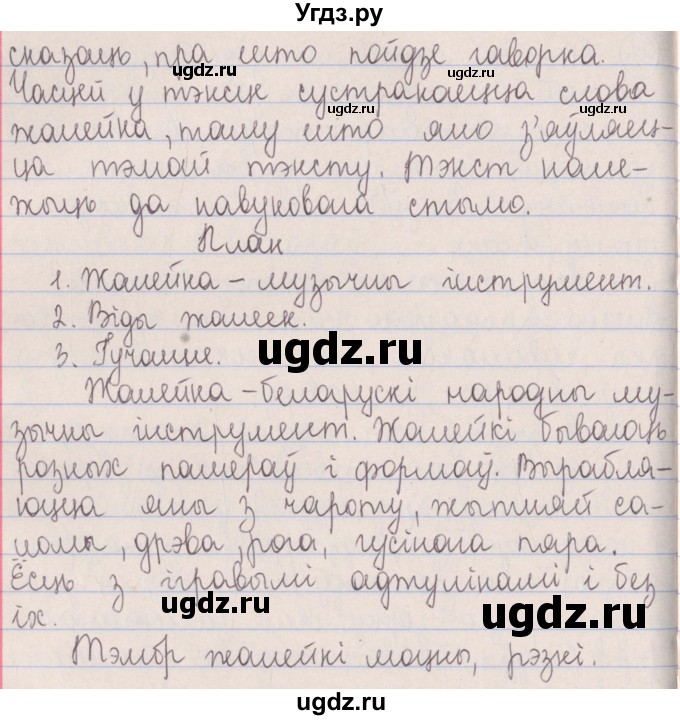 Угдз.ру
сказаць, пра што пойдзе гаворка.
Часцей у тэксце сустракаецца слова
жалейка, таму што яно з'яўляец-
ца тэмай тэксту. Тэкст нале-
жыць да навуковага стылю.
План
1. Жалейка – музычны інструмент.
2. Віды жалеек.
3. Гучанне.
Жалейка – беларускі народны му-
зычны інструмент. Жалейкі бываюць
розных памераў і формаў. Вырабля-
юцца яны з чароту, жытняй са-
ломы, дрэва, рога, гусінага пяра.
Ёсць з ігравымі адтулінамі і без
іх.
Тэмбр жалейкі моцны, рэзкі.
ugdz.ru
ugdz.ru
ugdz.ru
ugdz.ru
ugdz.ru
ugdz.ru
ugdz.ru
ugdz.ru
ugdz.ru